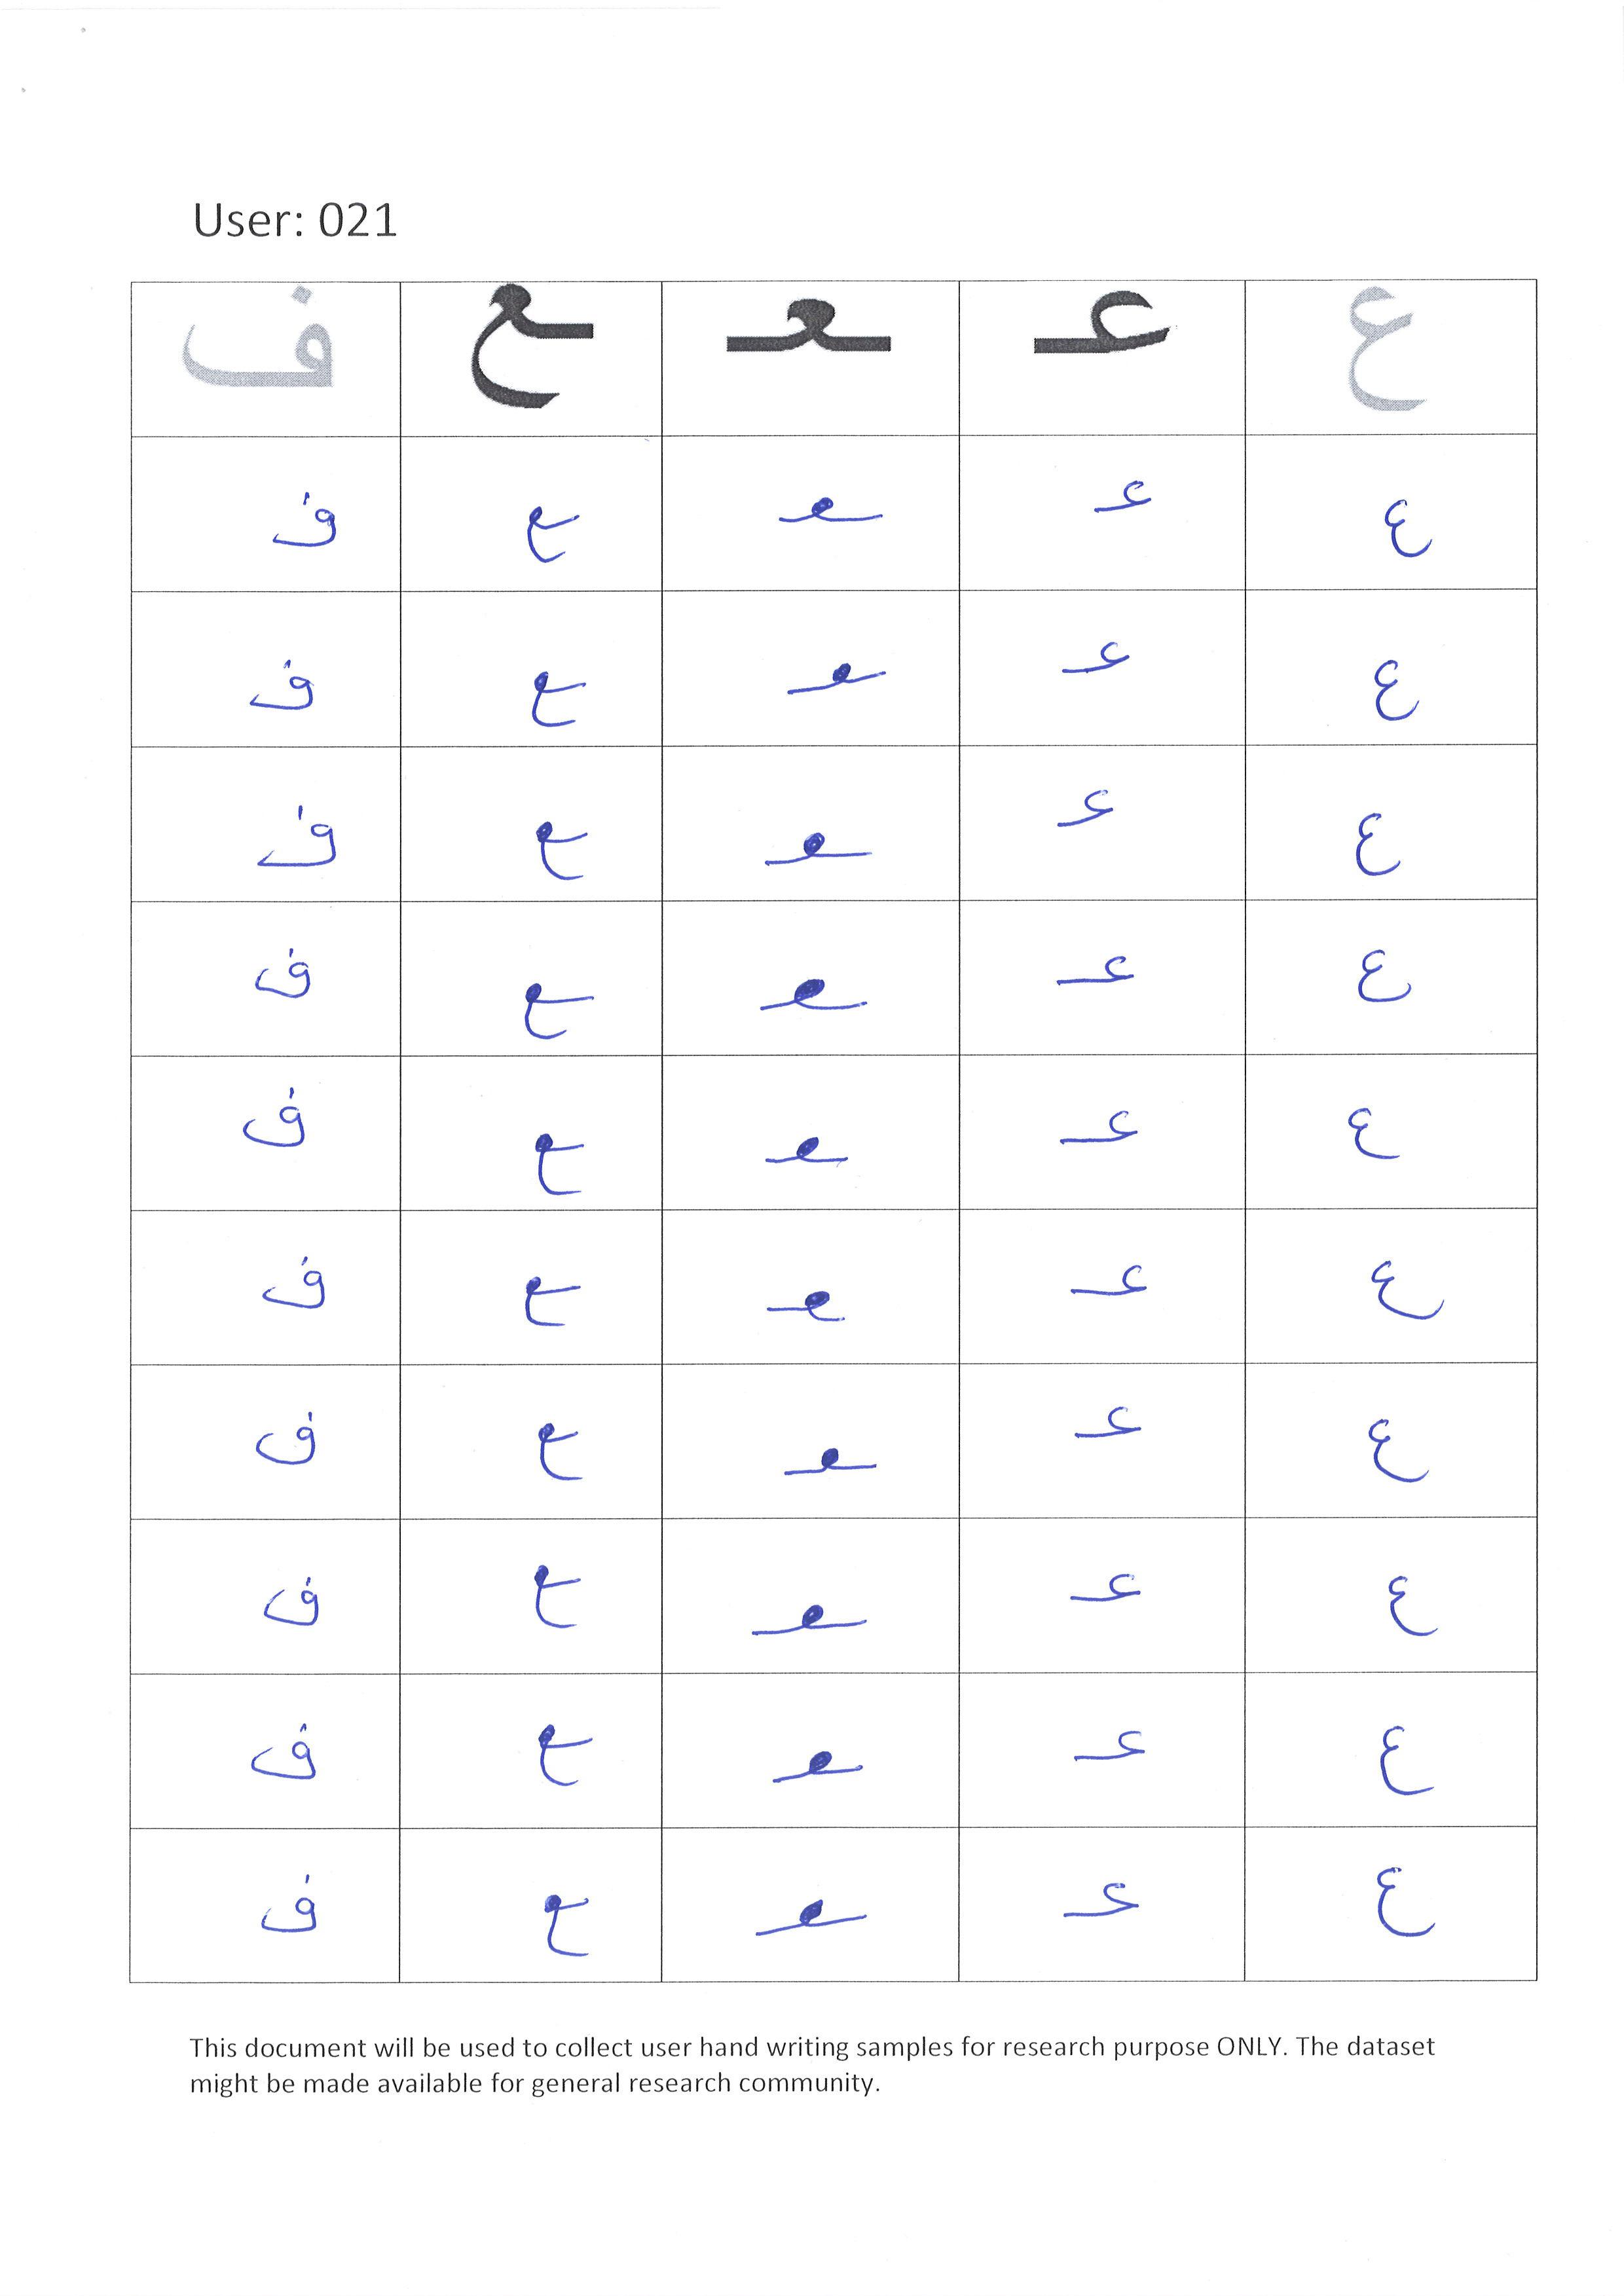 User: 021
ع عـ ـعـ ـع ف
ع عـ ـعـ ـع ف
ع عـ ـعـ ـع ف
ع عـ ـعـ ـع ف
ع عـ ـعـ ـع ف
ع عـ ـعـ ـع ف
ع عـ ـعـ ـع ف
ع عـ ـعـ ـع ف
ع عـ ـعـ ـع ف
ع عـ ـعـ ـع ف
ع عـ ـعـ ـع ف
This document will be used to collect user hand writing samples for research purpose ONLY. The dataset
might be made available for general research community.